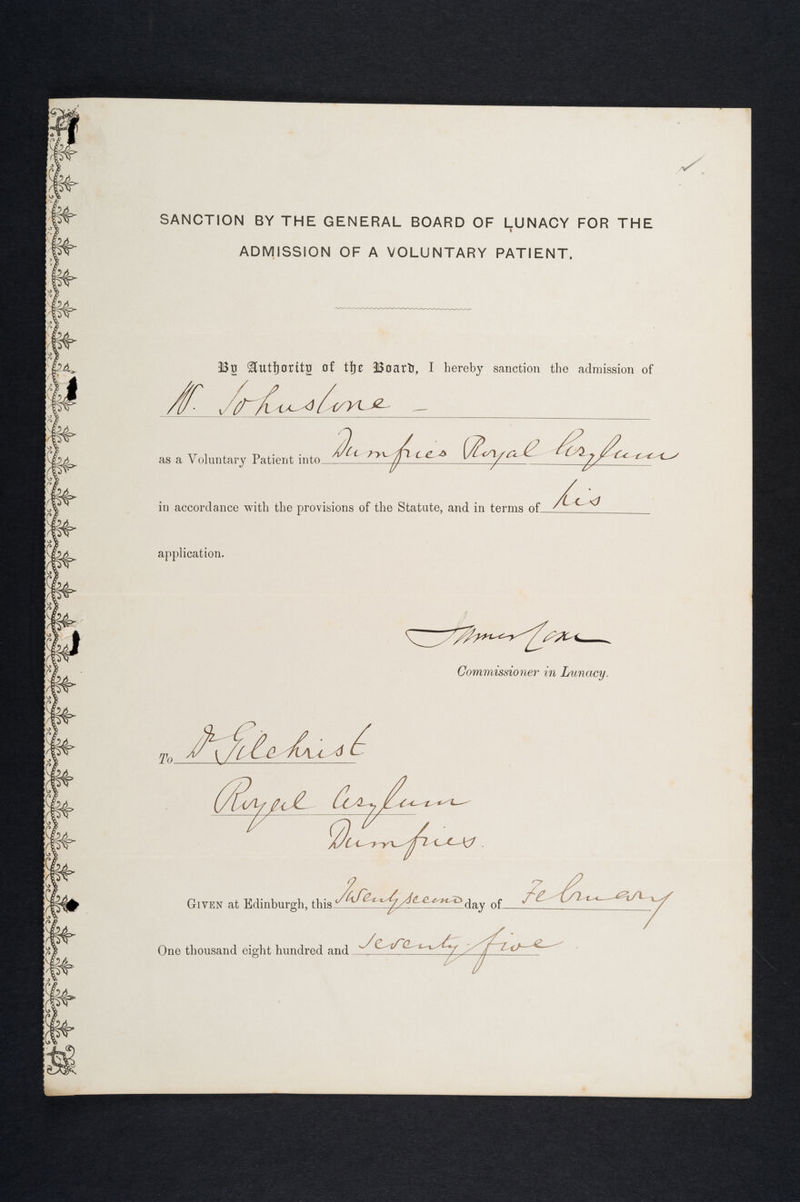 SANCTION BY THE GENERAL BOARD OF LUNACY FOR THE
ADMISSION OF A VOLUNTARY PATIENT.
By Authority of the Board, I hereby sanction the admission of
W. Johnstone
as a Voluntary Patient into Dumfries Royal Asylum
in accordance with the provisions of the Statute, and in terms of his
application.
James Coxe
Commissioner in Lunacy.
To Dr Gilchrist
Royal Asylum
Dumfries.
GIVEN at Edinburgh, this Twenty second day of February
One thousand eight hundred and Seventy-five